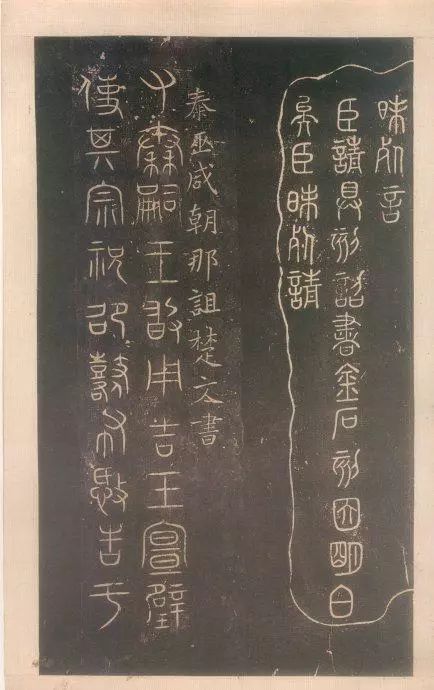 昧死言
臣請具刻詔書金石刻因明白
矣臣昧死請
秦巫咸朝那詛楚文書
又秦嗣王敢用吉玉宣璧
使其宗祝邵鼛布愍告于